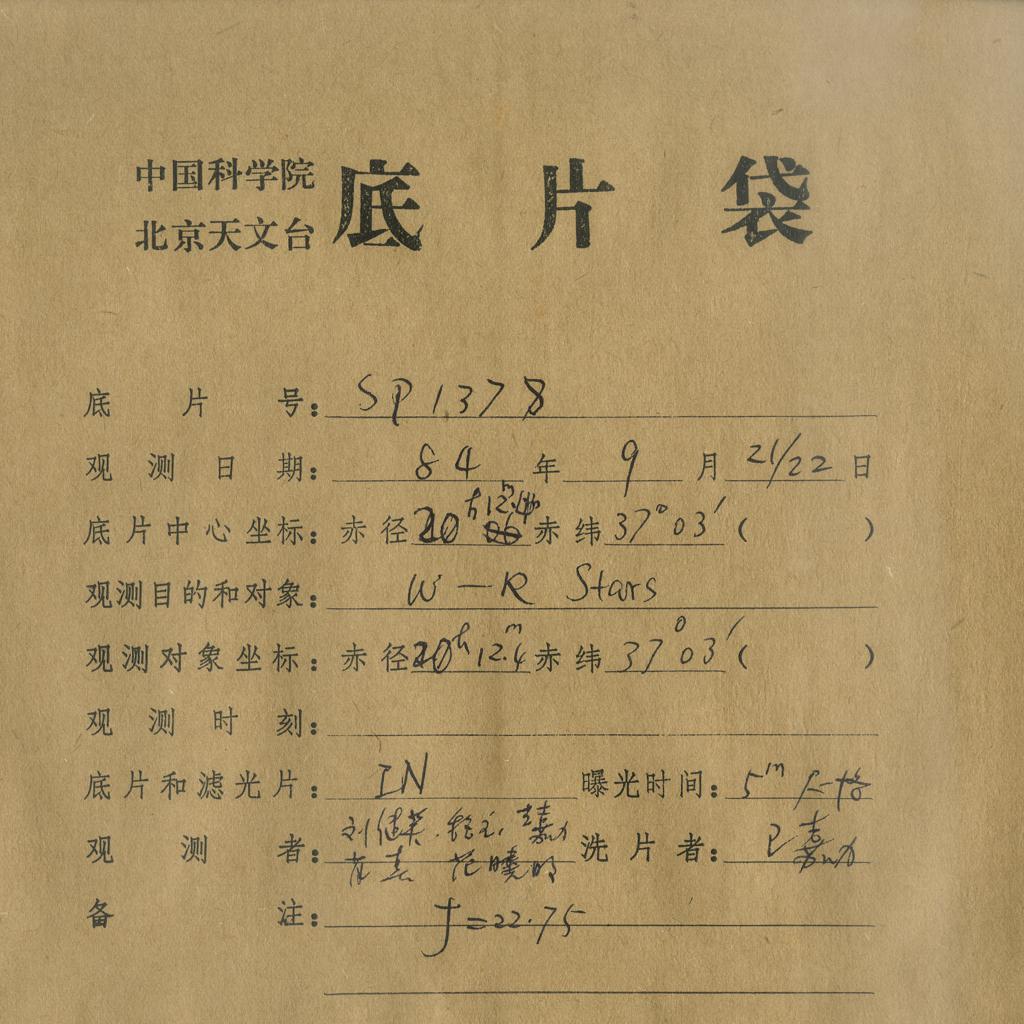 中国科学院
北京天文台
底片袋
底片号: SP1378
观测日期: 84年9月21/22日
底片中心坐标: 赤径20h 12.4m 赤纬37°03′( )
观测目的和对象: W-R Stars
观测对象坐标: 赤径20h 12.4m 赤纬37°03′( )
观测时刻:
底片和滤光片: IN 曝光时间: 5m
观测者: 洗片者:
备注: f=22.75